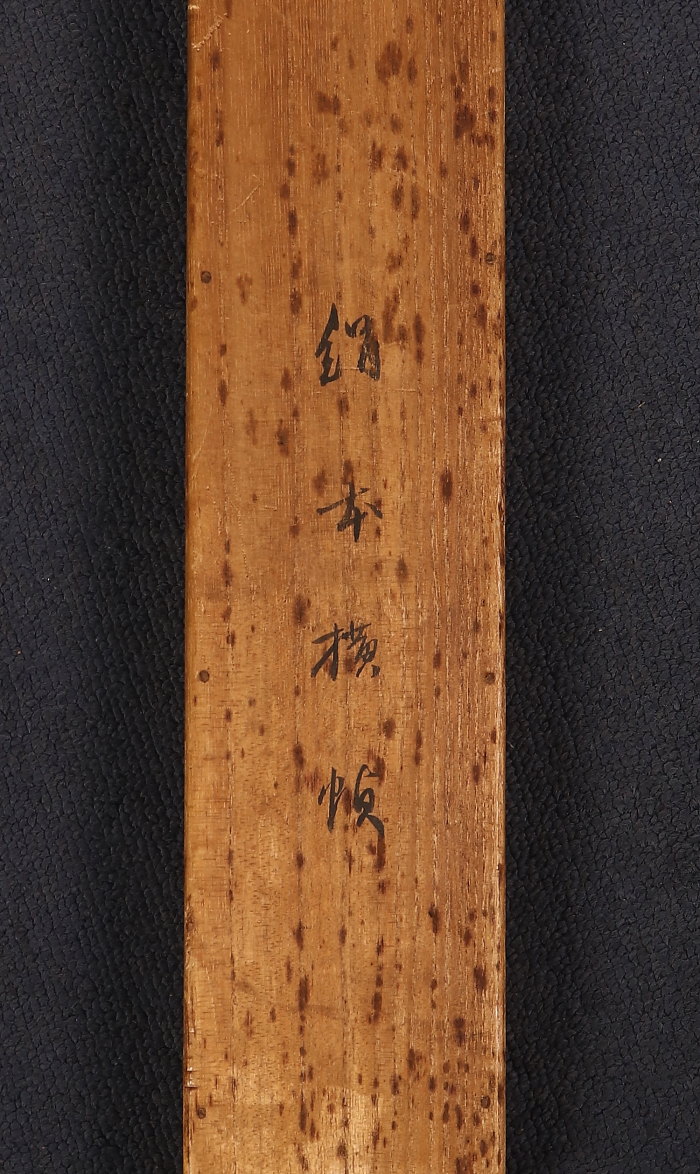 絹本横幀